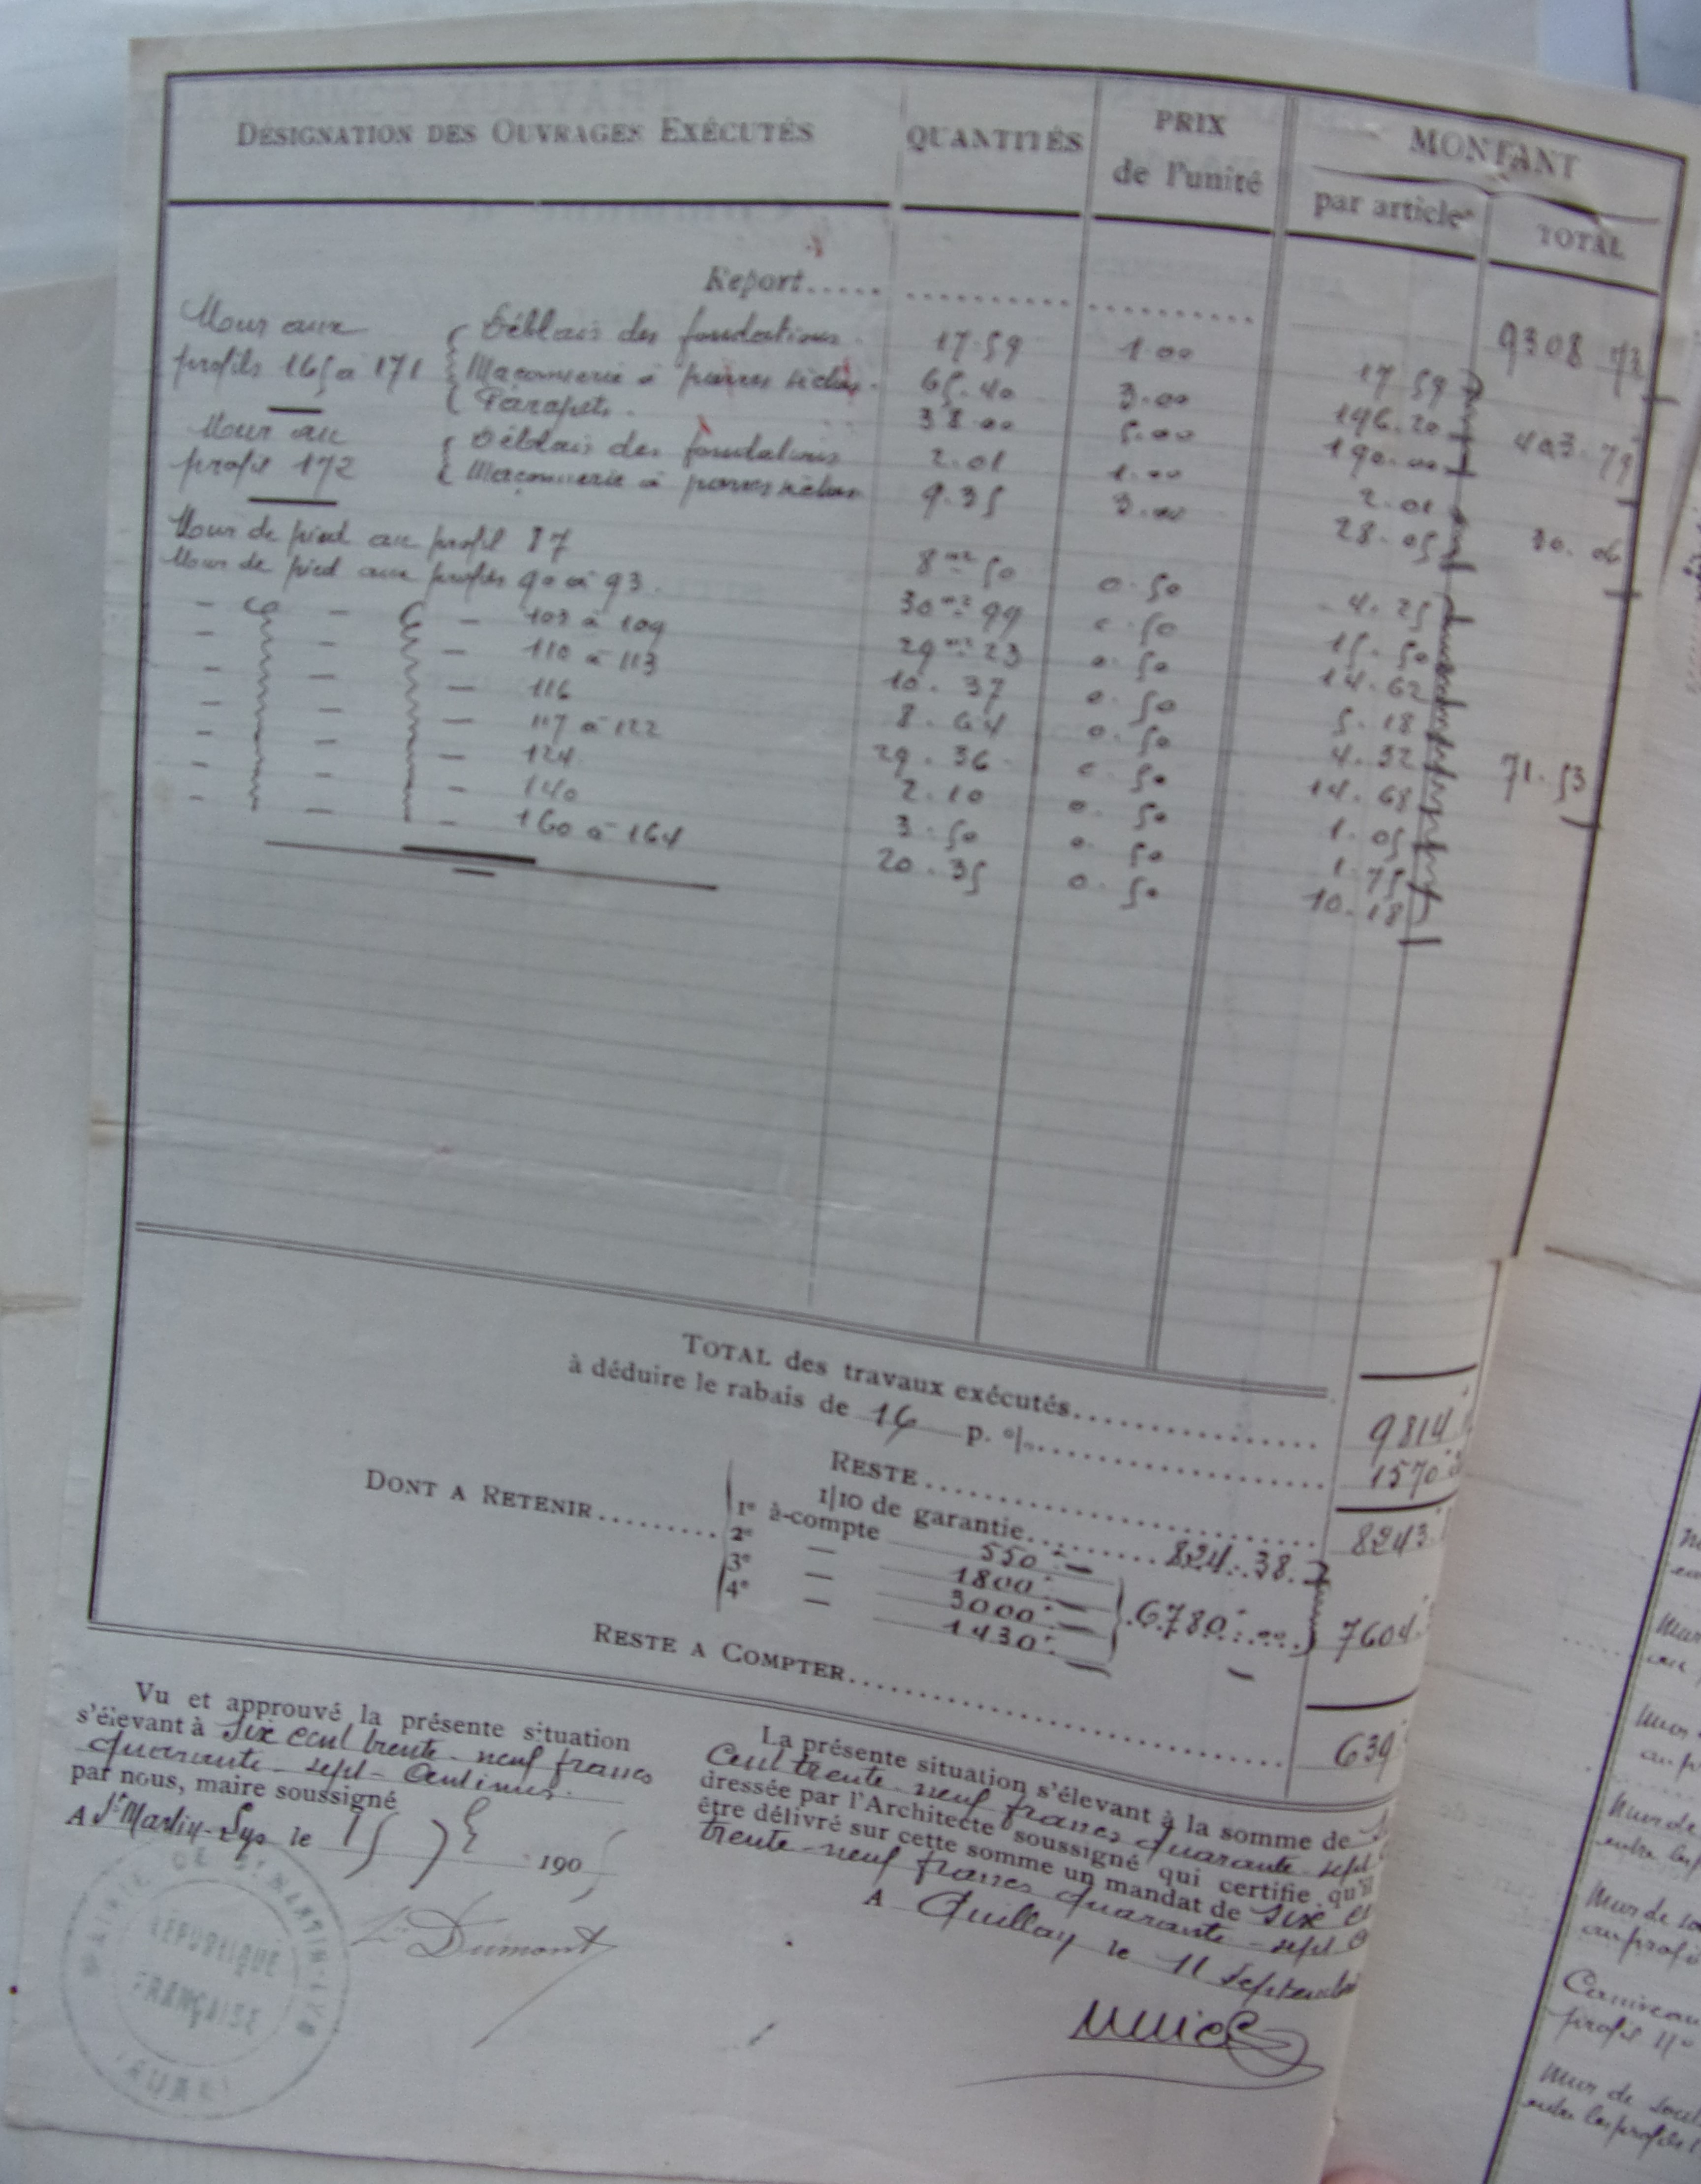 DÉSIGNATION DES OUVRAGES EXÉCUTÉS QUANTITÉS PRIX de l'unité MONTANT
par article TOTAL
Report..... 9308 73
Mur aux profils 165 à 171 Déblais des fondations 17.59 1.00 17.59
Maçonnerie à pierres sèches 65.40 3.00 196.20 403.79
Parapets. 38.00 5.00 190.00
Mur au profil 172 Déblais des fondations 2.01 1.00 2.01
Maçonnerie à pierres sèches 9.35 3.00 28.05 30.06
Mur de pied au profil 87 8 m2 50 0.50 4.25
Mur de pied aux profils 90 à 93. 30 m2 99 0.50 15.50
- - - 103 à 109 29 m2 23 0.50 14.62
- - - 110 à 113 10.37 0.50 5.18
- - - 116 8.64 0.50 4.32 71.53
- - - 117 à 122 29.36 0.50 14.68
- - - 124 2.10 0.50 1.05
- - - 140 3.50 0.50 1.75
- - - 160 à 164 20.35 0.50 10.18
TOTAL des travaux exécutés.......... 9814
à déduire le rabais de 16 p. o/o.......... 1570
RESTE.......... 8243
DONT A RETENIR.......... 1/10 de garantie.......... 824.38.
1e à-compte 550
2e — 1800
3e — 3000 6780.00 7604
4e — 1430
RESTE A COMPTER.......... 639
Vu et approuvé la présente situation
s'élevant à Six cent trente-neuf francs
quarante-sept-Centimes.
par nous, maire soussigné
A St Martin-Lys le 15 7e 1905
L. Dumont
MAIRIE DE ST MARTIN-LYS
RÉPUBLIQUE
FRANÇAISE
(AUDE)
La présente situation s'élevant à la somme de
Cent trente neuf francs quarante-sept
dressée par l'Architecte soussigné qui certifie qu'il
être délivré sur cette somme un mandat de Six
trente-neuf francs quarante-sept
A Quillan le 11 Septembre
Mur de
entre les
Mur de
au profil
profil No
Mur de
entre les profils